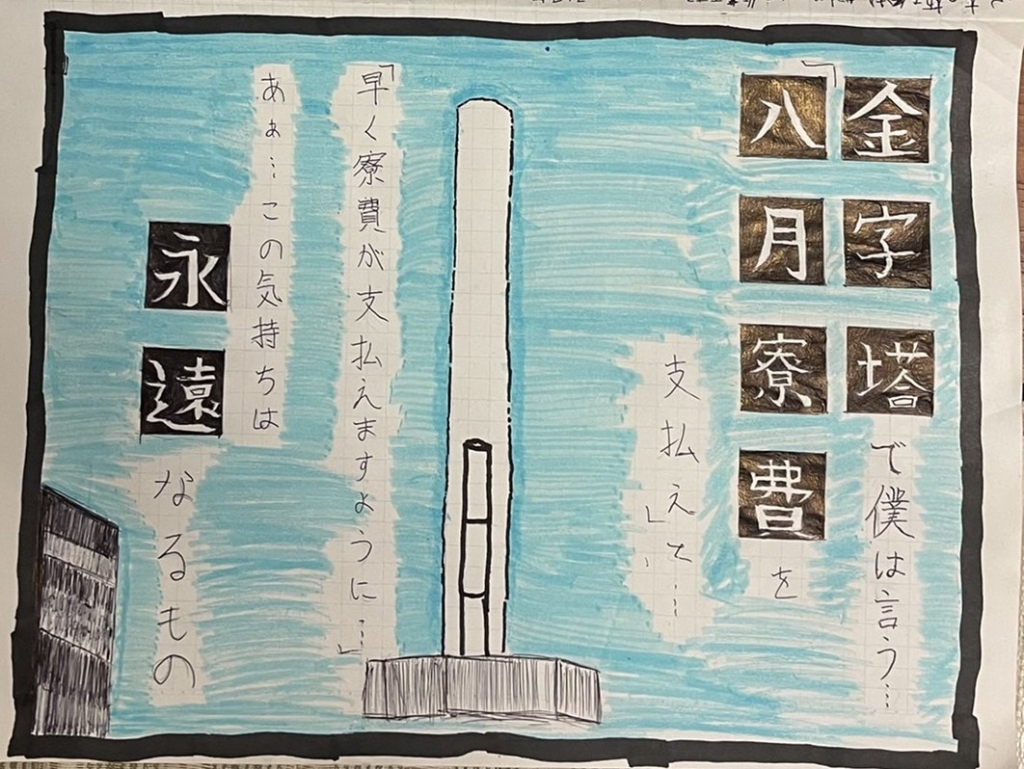 金字塔で僕は言う…
「八月寮費を
支払えと…」、
「早く寮費が支払えますように…」
あぁ…この気持ちは
永遠なるもの